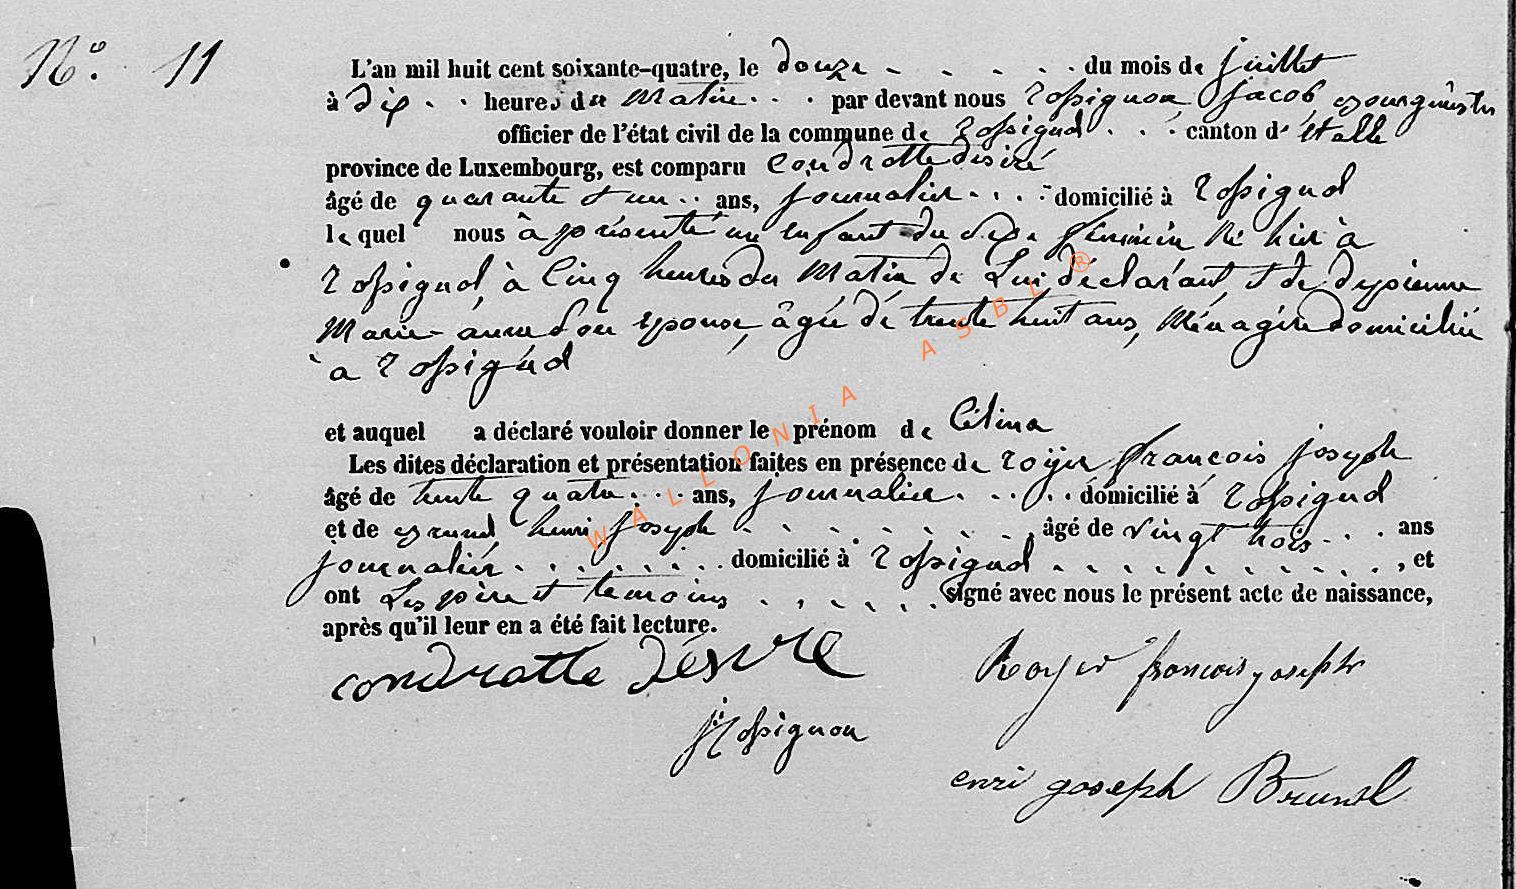 N.º 11
L'an mil huit cent soixante-quatre, le douze du mois de juillet
à dix heures du matin par devant nous Rossignon Jacob Bourgmestre
officier de l'état civil de la commune de Rossignol canton d'étalle
province de Luxembourg, est comparu Condrotte désiré
âgé de quarante et un ans, journalier domicilié à Rossignol
le quel nous à présenté un enfant du sexe féminin né hier à
Rossignol, à Cinq heures du matin de Lui déclarant, et de
Marie-anne Son épouse, âgée de trente huit ans, Ménagère domiciliée
à Rossignol
et auquel a déclaré vouloir donner le prénom de Célina
Les dites déclaration et présentation faites en présence de royer françois joseph
âgé de trente quatre ans, journalier domicilié à Rossignol
et de henri joseph âgé de vingt trois ans
journalier domicilié à Rossignol, et
ont Les père et temoins signé avec nous le présent acte de naissance,
après qu'il leur en a été fait lecture.
condrotte désiré Royer francois joseph
j Rossignon
enri joseph Brunel
WALLONIA ASBL ®